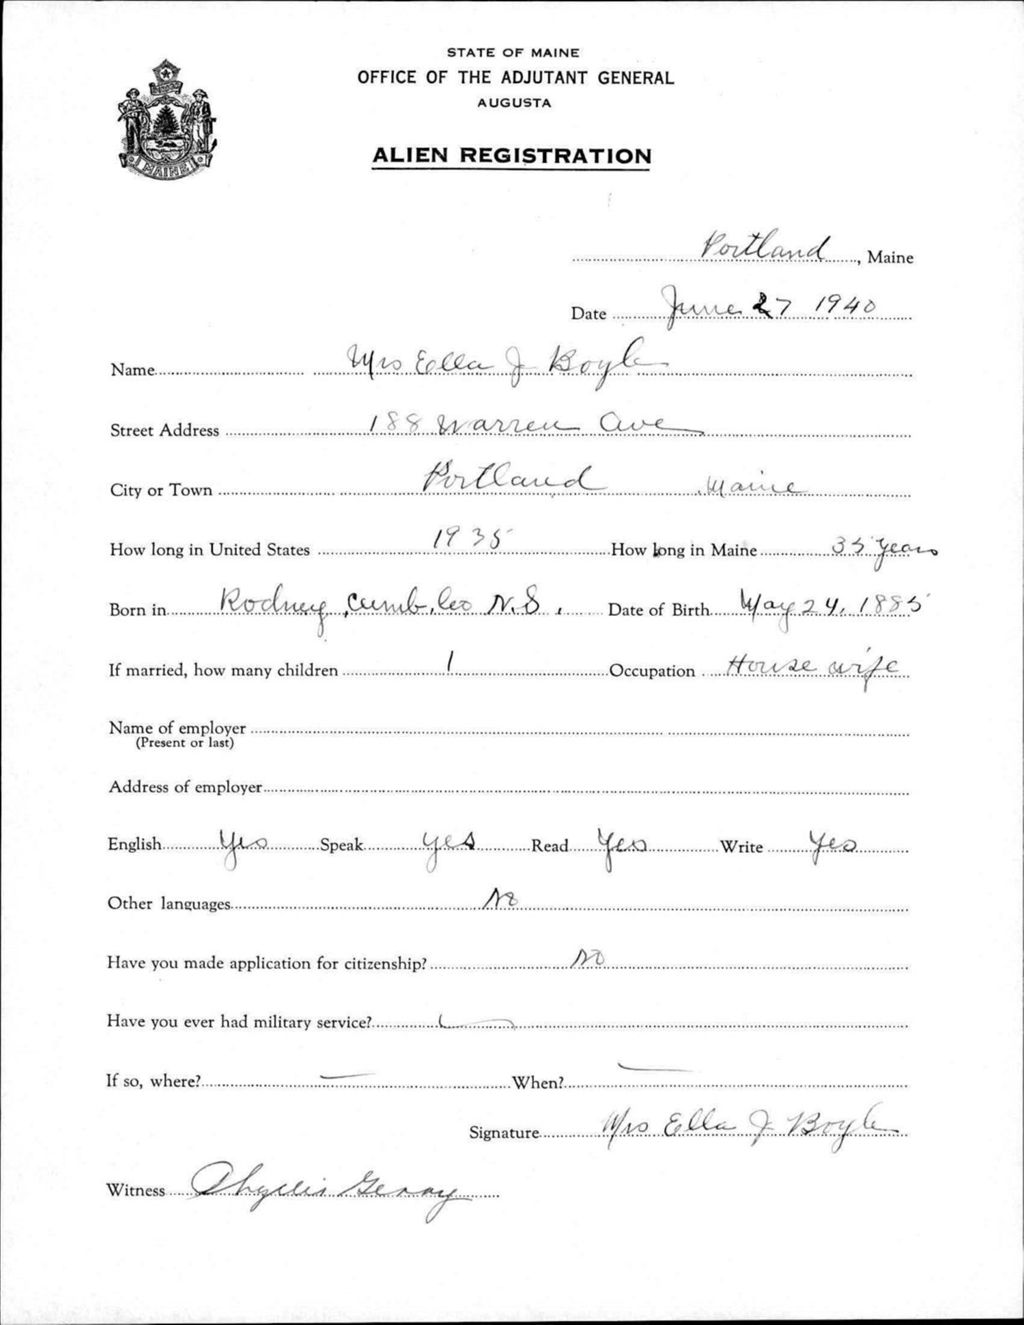 STATE OF MAINE
OFFICE OF THE ADJUTANT GENERAL
AUGUSTA
ALIEN REGISTRATION
MAINE
Portland, Maine
Date June 27 1940
Name Mrs Ella J Boyle
Street Address 188 Warren Ave
City or Town Portland Maine
How long in United States 1935 How long in Maine 35 Years
Born in Rodney, Cumb. Co N.S. Date of Birth May 24, 1885
If married, how many children 1 Occupation House wife
Name of employer
(Present or last)
Address of employer
English Yes Speak Yes Read Yes Write Yes
Other languages No
Have you made application for citizenship? No
Have you ever had military service?
If so, where? — When? —
Signature Mrs Ella J Boyle
Witness Phyllis